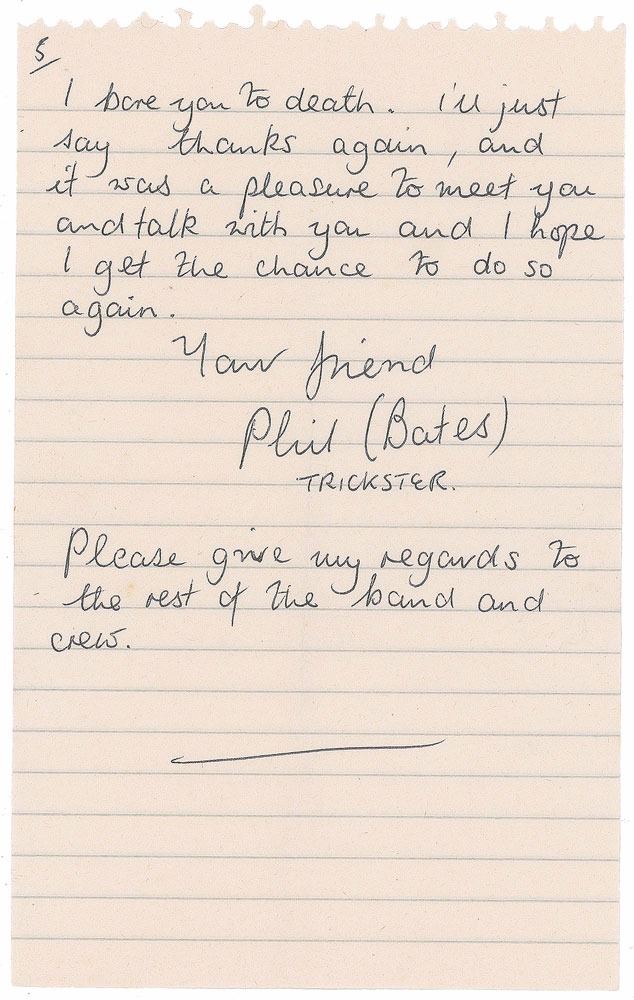 5
I bore you to death. i'll just
say thanks again, and
it was a pleasure to meet you
and talk with you and I hope
I get the chance to do so
again.
Your friend
Phil (Bates)
TRICKSTER.
Please give my regards to
the rest of the band and
crew.